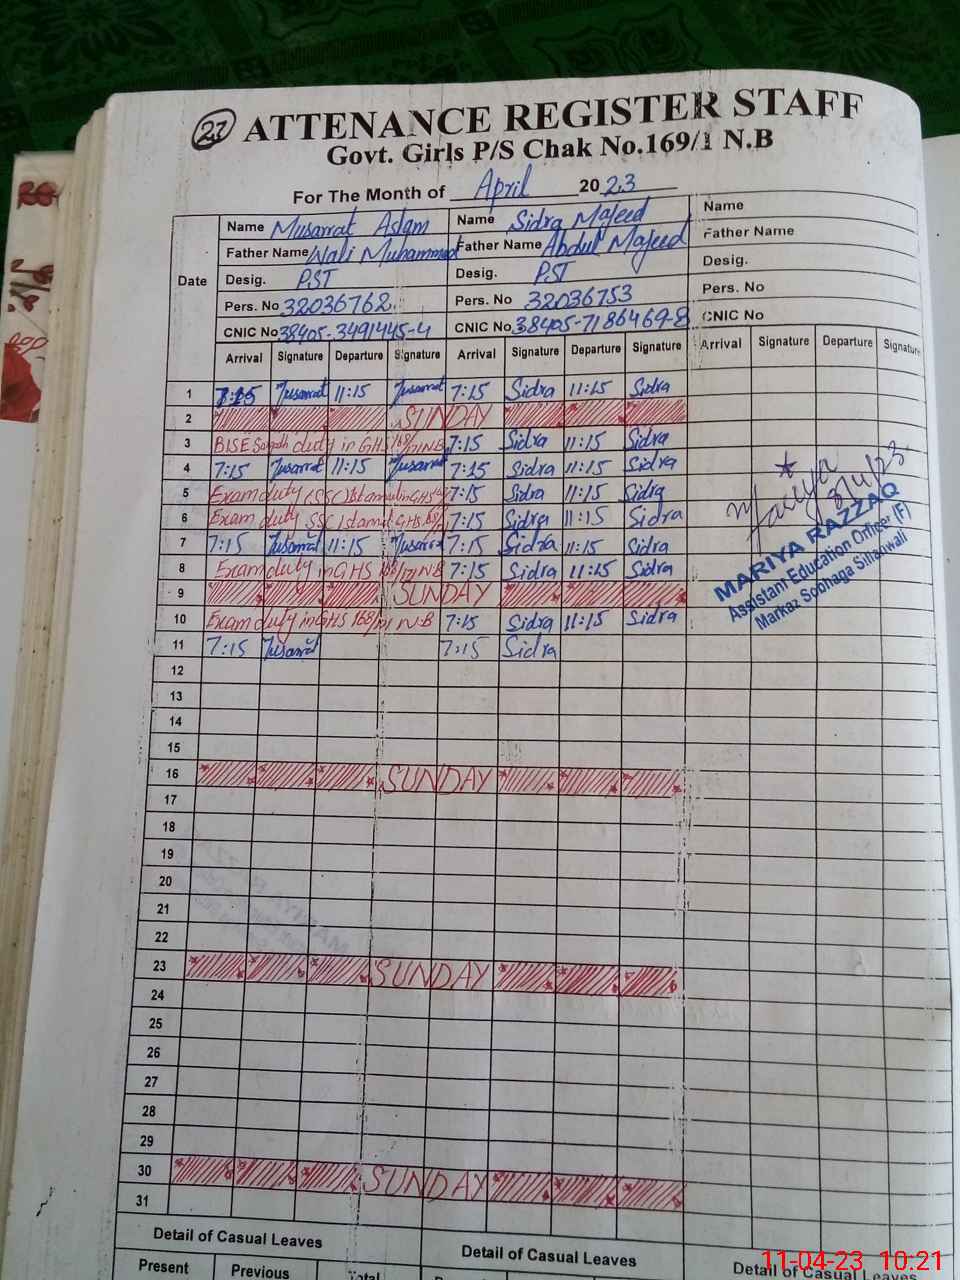 27 ATTENANCE REGISTER STAFF
Govt. Girls P/S Chak No.169/1 N.B
For The Month of April 2023
Name Musarrat Aslam Name Sidra Majeed Name
Father Name Wali Muhammad Father Name Abdul Majeed Father Name
Date Desig. PST Desig. PST Desig.
Pers. No 32036762 Pers. No 32036753 Pers. No
CNIC No 38405-3491445-4 CNIC No 38405-7186469-8 CNIC No
Arrival Signature Departure Signature Arrival Signature Departure Signature Arrival Signature Departure Signature
1 7:15 Musarrat 11:15 Musarrat 7:15 Sidra 11:15 Sidra
2 SUNDAY
3 BISE Sargodh duty in GHS 168/1 NB 7:15 Sidra 11:15 Sidra
4 7:15 Musarrat 11:15 Musarrat 7:15 Sidra 11:15 Sidra
5 Exam duty (SSC) Ist annual in GHS 7:15 Sidra 11:15 Sidra
6 Exam duty SSC Ist annual GHS 168/1 7:15 Sidra 11:15 Sidra
7 7:15 Musarrat 11:15 Musarrat 7:15 Sidra 11:15 Sidra
8 Exam duty in GHS 168/1 N.B 7:15 Sidra 11:15 Sidra
9 SUNDAY
10 Exam duty in GHS 168/1 N.B 7:15 Sidra 11:15 Sidra
11 7:15 Musarrat 7:15 Sidra
12
13
14
15
16 SUNDAY
17
18
19
20
21
22
23 SUNDAY
24
25
26
27
28
29
30 SUNDAY
31
MARIYA RAZZAQ
Assistant Education Officer (F)
Markaz Sobhaga Sillanwali
Detail of Casual Leaves Detail of Casual Leaves Detail of Casual Leaves
Present Previous Total
11-04-23 10:21